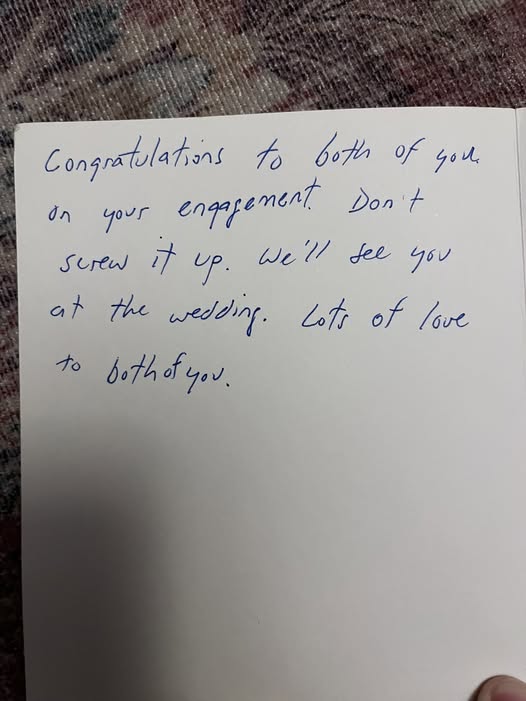 Congratulations to both of you
on your engagement. Don't
screw it up. We'll see you
at the wedding. Lots of love
to both of you.